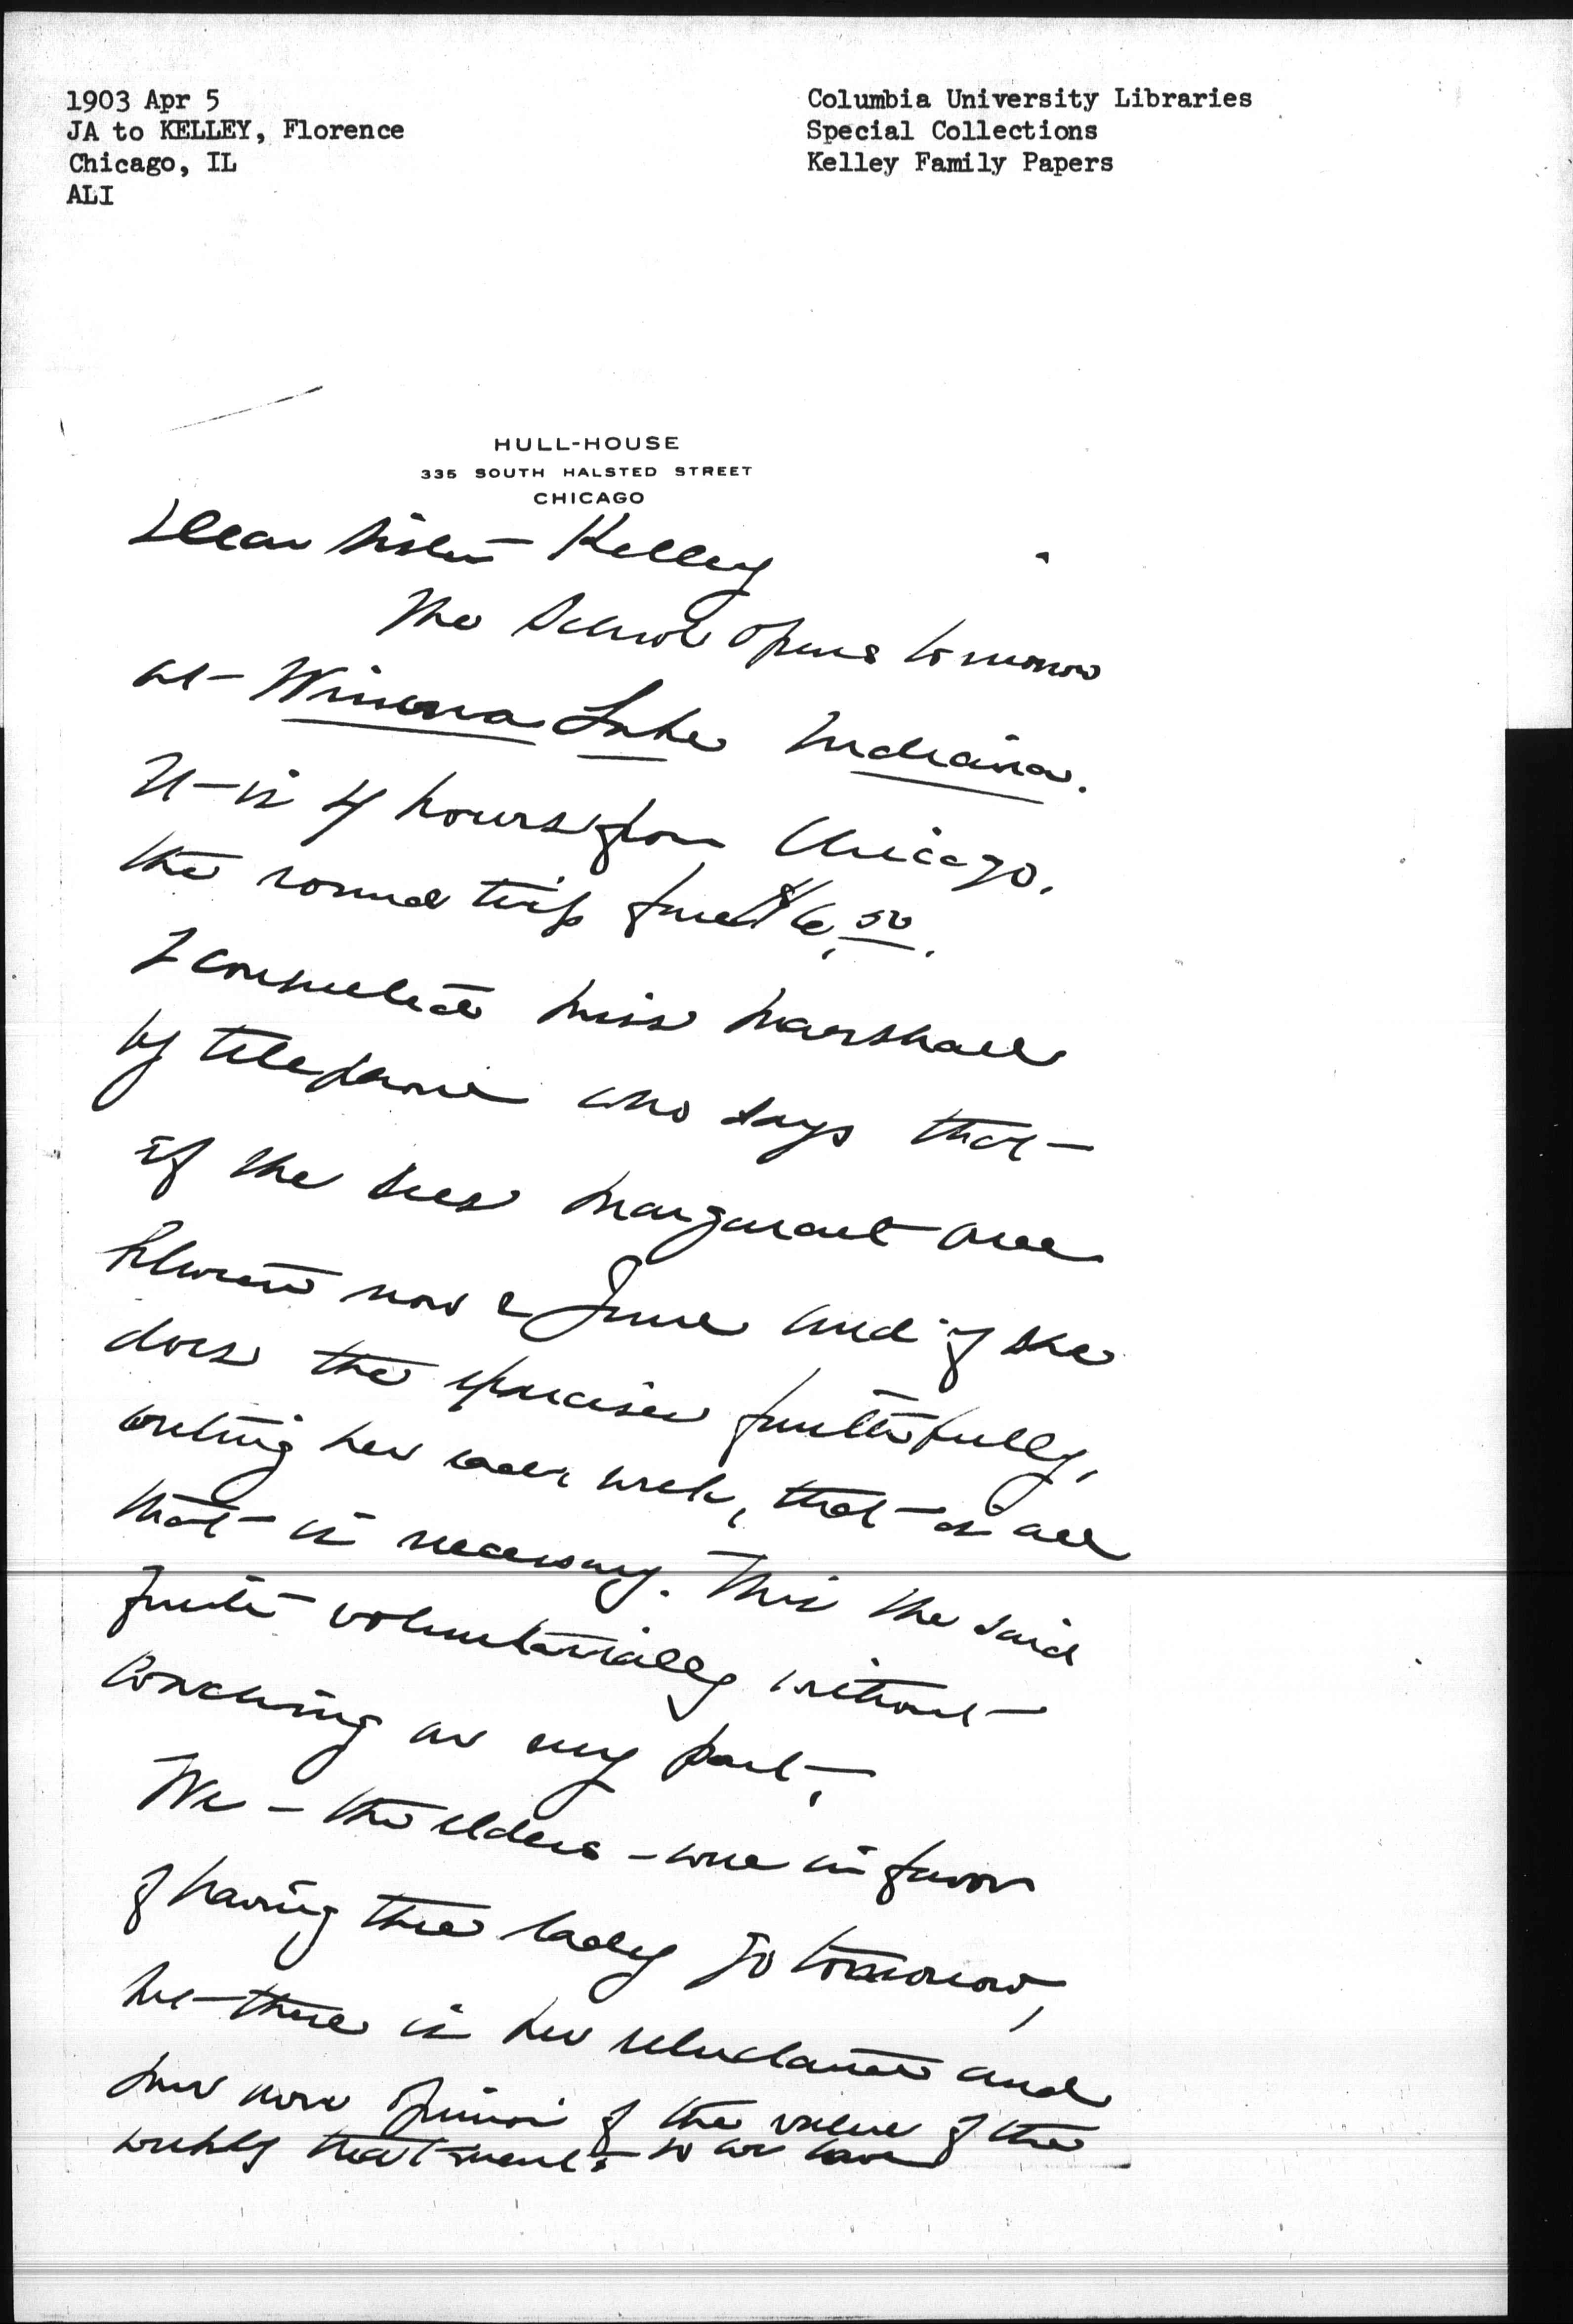 1903 Apr 5
JA to KELLEY, Florence
Chicago, IL
ALI
Columbia University Libraries
Special Collections
Kelley Family Papers
HULL-HOUSE
335 SOUTH HALSTED STREET
CHICAGO
Dear Sister Kelley
The School opens tomorrow
at Winona Lake Indiana.
It is 4 hours from Chicago.
the round trip fare $6.50.
I consulted Miss Marshall
by telephone who says that
if she sees Margaret and
now & June and if she
does the exercises faithfully,
writing her each week, that is all
that is necessary. This she said
quite voluntarially without
coaching on my part.
We - the elders - were in favor
of having the lady go tomorrow,
but there is her reluctance and
her own opinion of the value of the
weekly treatments so we have